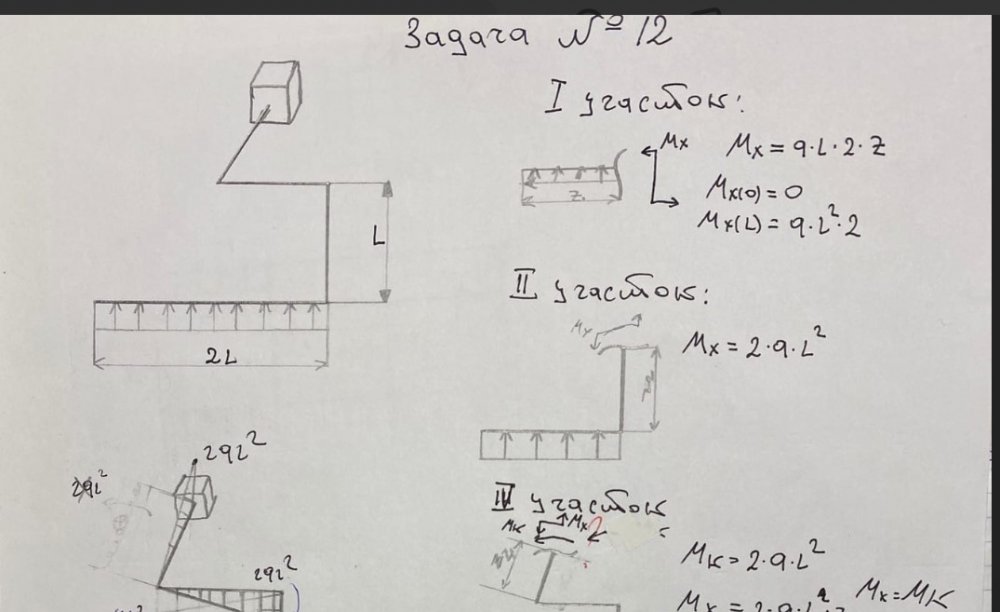 Задача №12
I участок:
Mx
Mx = q·L·2·z
z
Mx(0) = 0
Mx(L) = q·L²·2
L
II участок:
Mx
Mx = 2·q·L²
2L
2qL²
2qL²
III участок
Mк
Mx
Mк = 2·q·L²
2qL²
Mx = Mк